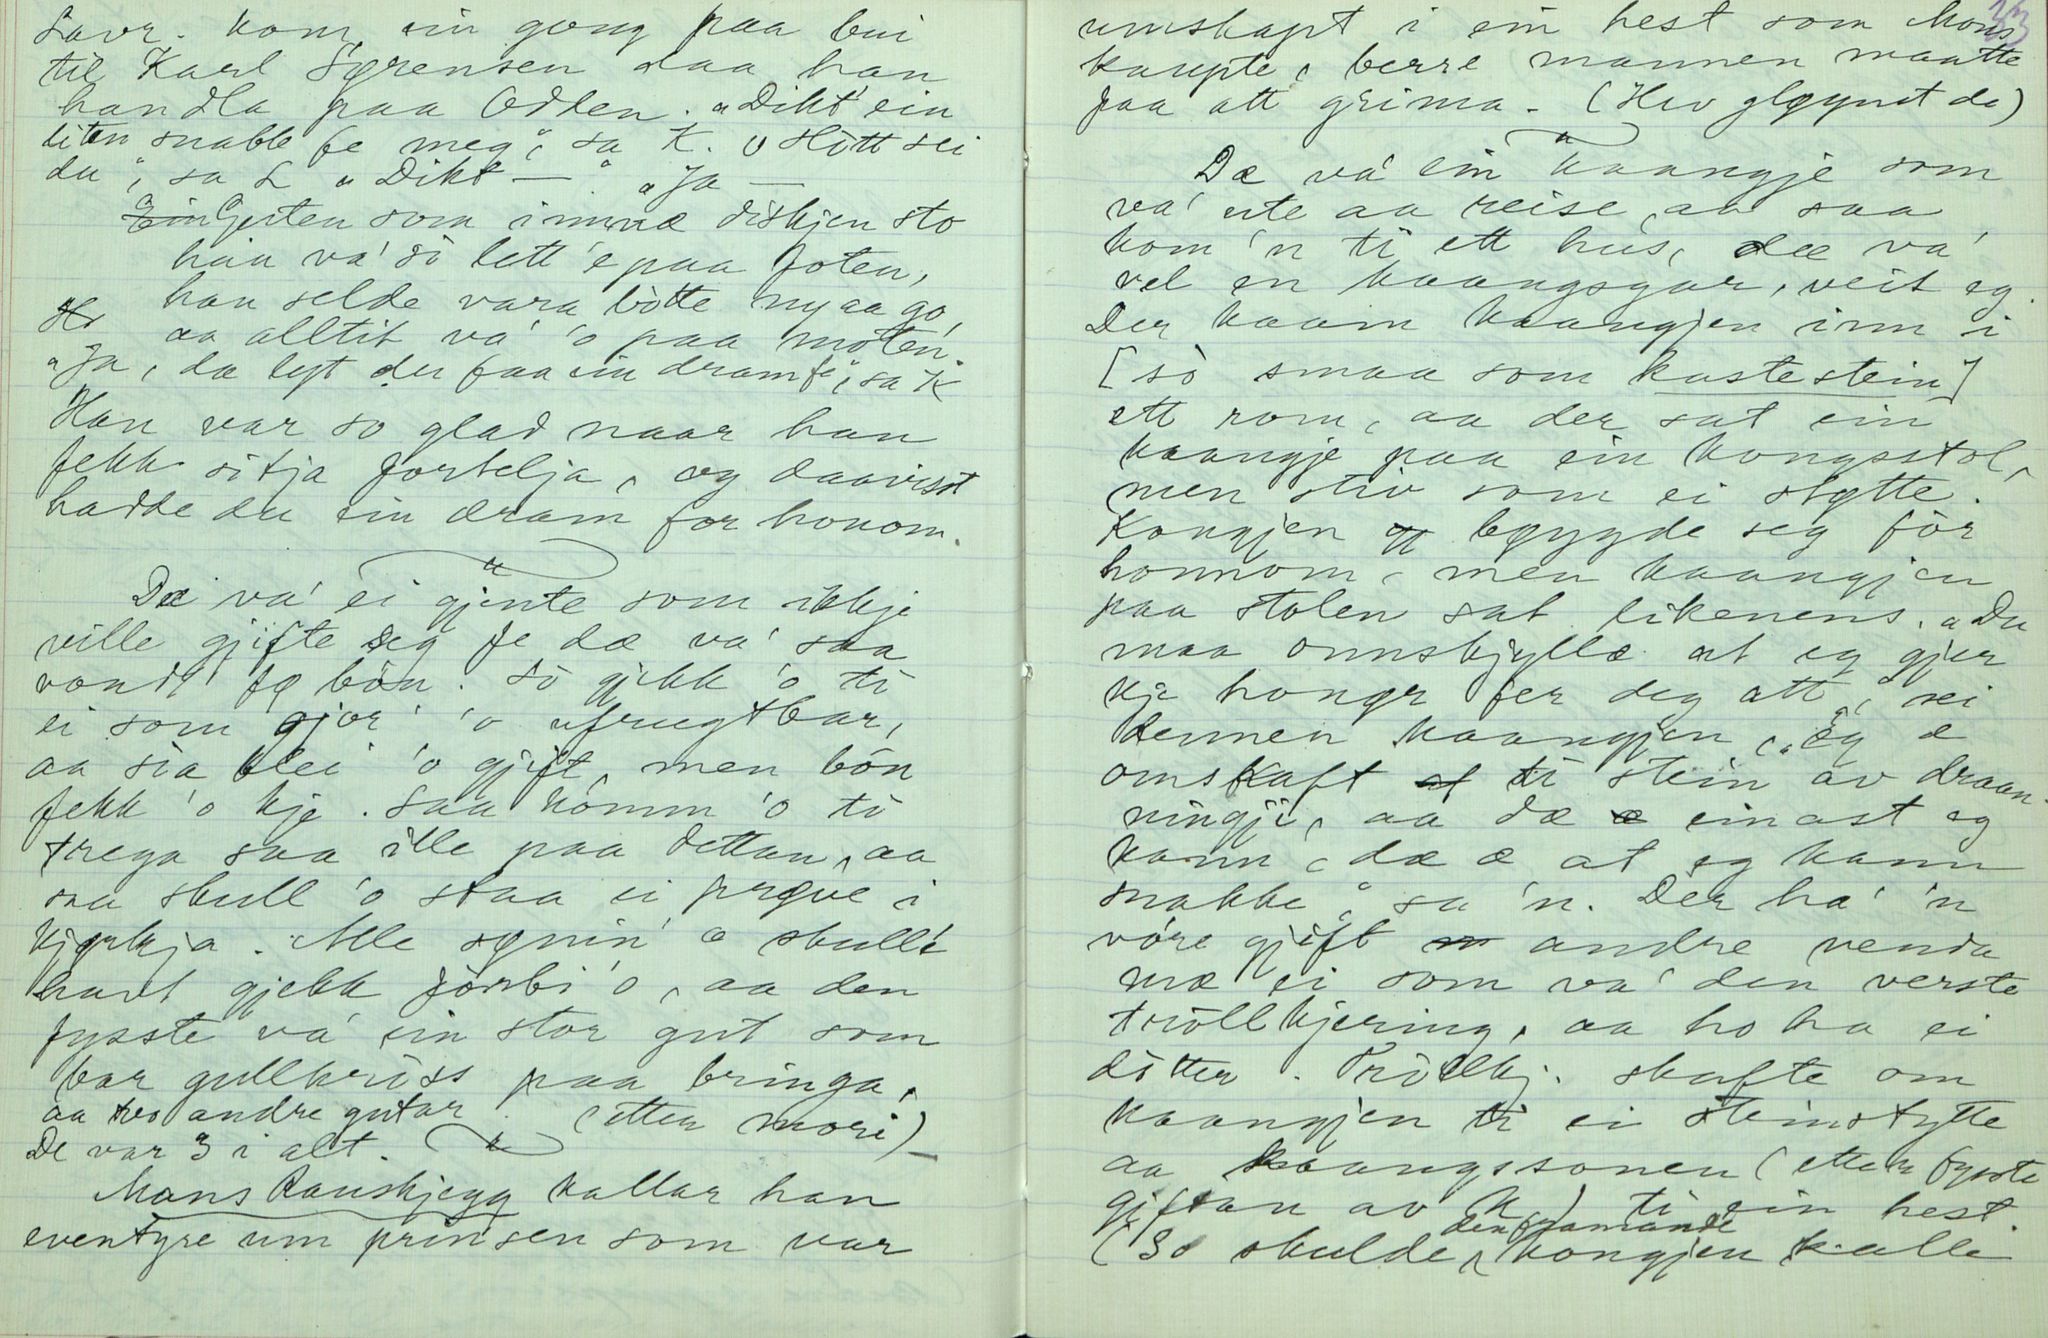 Lavr. kom ein gong paa bui
til Karl Sørensen daa han
handla paa Odden. „Dikt ein
liten snabb fe meg", sa K. „Hött sei
du", sa L „Dikt — ." „Ja —
„Gjesten som innmæ diskjen sto
hàn va' sò lett 'e paa foten,
han selde vara bòtte ny aa go,
aa alltit va' 'o paa moten.
„Ja, dæ lyt du faa ein dram fe", sa K
Han var so glad naar han
fekk sitja fortelja, og daavisst
hadde du ein dram for honom.
Dæ va' ei gjente som ikkje
ville gjifte seg fe dæ va' saa
vondt fø bòn. Sò gjekk 'o ti
ei som gjor' 'o ufrugtbar,
aa sia blei 'o gjift, men bòn
fekk 'o kje. Saa kòmm 'o ti
trega saa ille paa dettan, aa
saa skull 'o staa ei prøve i
kjørkja. Alle sønin' o skulle
havt gjekk fòrbi 'o, aa den
fysste va' ein stor gut som
bar gullkross paa bringa,
aa two andre gutar. (etter mori)
De var 3 i alt.
Mons Rauskjegg kallar han
eventyre um prinsen som var
33
umskapt i ein hest som Mons
kaupte, berre mannen maatte
faa att grima. (Hev gløymt de)
Dæ va' ein kaangje som
va' ute aa reise, aa saa
kom 'n ti ett hus, dæ va'
vel en kaangsgar, veit eg.
Der kaam kaangjen inn i
[sò smaa som kastestein]
ett rom, aa der sat ein
kaangje paa ein kongsstol,
men stiv som ei støtte.
Kongjen bøygde seg fòr
honnom, men kaangjen
paa stolen sat likenens. „Du
maa onnskjylle at eg gjer
kje honør fer deg att", sei
dennen kaangjen, „Eg æ
omskaft ti stein av draan-
ningji, aa dæ einast eg
kann, dæ æ at eg kann
snakke" sa 'n. Der ha' 'n
vòre gjift andre venda
mæ ei som va' den verste
tròllkjering, aa ho ha ei
dòtter. Tròllkj. skafte om
kaangjen ti ei steinstytte
aa kaangssonen (etter fyrste
gjiftan av K) ti ein hest.
(So skulde den framande kongjen kalle